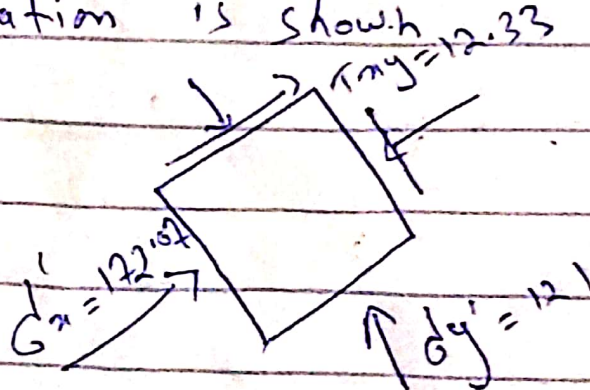 ation is shown
τmy=12.33
σ'x = 172.07
σy' = 121